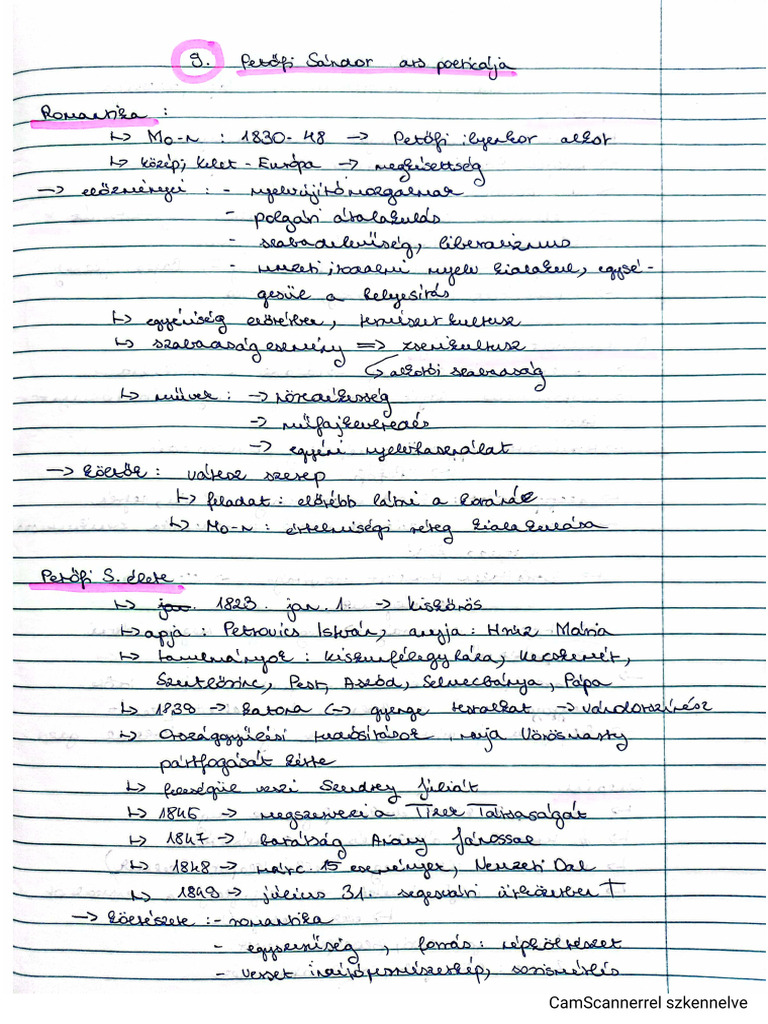 9. Petőfi Sándor ars poeticája
Romantika :
↳ Mo-n : 1830-48 → Petőfi ilyenkor alkot
↳ közép, kelet-Európa → megkésettség
→ előzményei : - nyelvújítómozgalmak
- polgári átalakulás
- szabadelműség, liberalizmus
- nemzeti irodalmi nyelv kialakul, egysé-
gesül a helyesírás
↳ egyéniség előtérben, természet kultusz
↳ szabadság esemény ⇒ zsenikultusz
↳ alkotói szabadság
↳ művek : →
→ műfajkeveredés
→ egyéni nyelvhasználat
→ költők : vátesz szerep
↳ feladat : előrébb látni a koránál
↳ Mo-n : értelmiségi réteg kialakulása
Petőfi S. élete
↳ 1823. jan. 1. → Kiskőrös
↳ apja : Petrovics István, anyja : Hrúz Mária
↳ tanulmányok : Kiskunfélegyháza, Kecskemét,
Szentlőrinc, Pest, Aszód, Selmecbánya, Pápa
↳ 1839 → katona ↔ gyenge testalkat → vándorszínész
↳ Országgyűlési tudósítások, majd Vörösmarty
pártfogását kérte
↳ feleségül veszi Szendrey Júliát
↳ 1846 → megszervezi a Tízek Társaságát
↳ 1847 → barátság Arany Jánossal
↳ 1848 → márc. 15 események, Nemzeti Dal
↳ 1849 → július 31. segesvári ütközetben †
→ költészete : - romantika
- egyszerűség, forrás : népköltészet
- verset indító természetkép, szóismétlés
CamScannerrel szkennelve